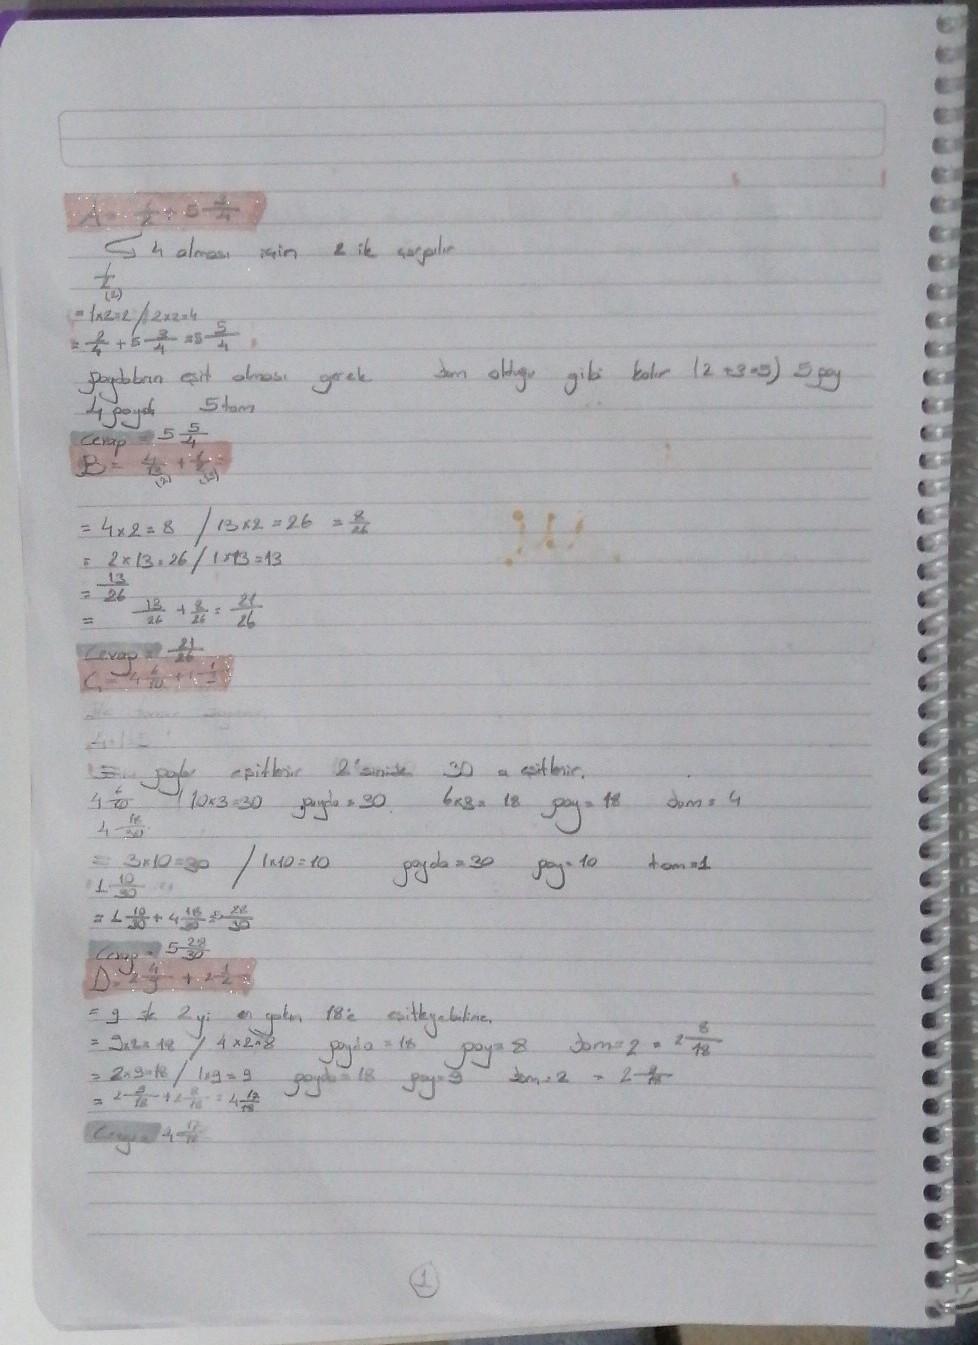 A = 1/2 + 5 3/4
4 olması için 2 ile çarpılır
1/2 (2)
= 1x2=2 / 2x2=4
= 2/4 + 5 3/4 = 5 5/4
paydaların eşit olması gerek tam olduğu gibi kalır (2+3=5) 5 pay
4 payda 5 tam
Cevap = 5 5/4
B = 4/13 (2) + 1/2 (13)
= 4x2=8 / 13x2=26 = 8/26
= 2x13=26 / 1x13=13
= 13/26
= 13/26 + 8/26 = 21/26
Cevap = 21/26
C = 4 6/10 + 1 1/3
= paylar eşitlenir 2'sinide 30 a eşitlenir.
4 6/10 / 10x3=30 payda = 30 6x3=18 pay=18 tam = 4
4 18/30
= 3x10=30 / 1x10=10 payda=30 pay=10 tam=1
1 10/30
= 1 10/30 + 4 18/30 = 5 28/30
Cevap = 5 28/30
D = 2 4/9 + 2 1/2
= 9 ile 2 yi en yakın 18'e eşitleyebiliriz.
= 9x2=18 / 4x2=8 payda=18 pay=8 tam=2 = 2 8/18
= 2x9=18 / 1x9=9 payda=18 pay=9 tam=2 = 2 9/18
= 2 9/18 + 2 8/18 = 4 17/18
Cevap = 4 17/18
1